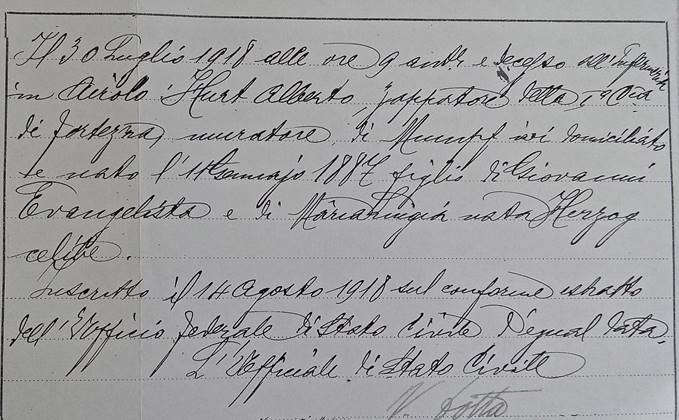 Il 30 Luglio 1918 alle ore 9 ant. è decesso all'Infermeria
in Airolo Hurt Alberto, zappatore della Cia
di fortezza, muratore, di Mumpf ivi domiciliato
e nato l'11 Gennajo 1887 figlio di Giovanni
Evangelista e di Maria Luigia nata Herzog
celibe.
Inscritto il 14 Agosto 1918 sul conforme estratto
dell'Ufficio federale di Stato Civile d'egual data.
L'Officiale di Stato Civile